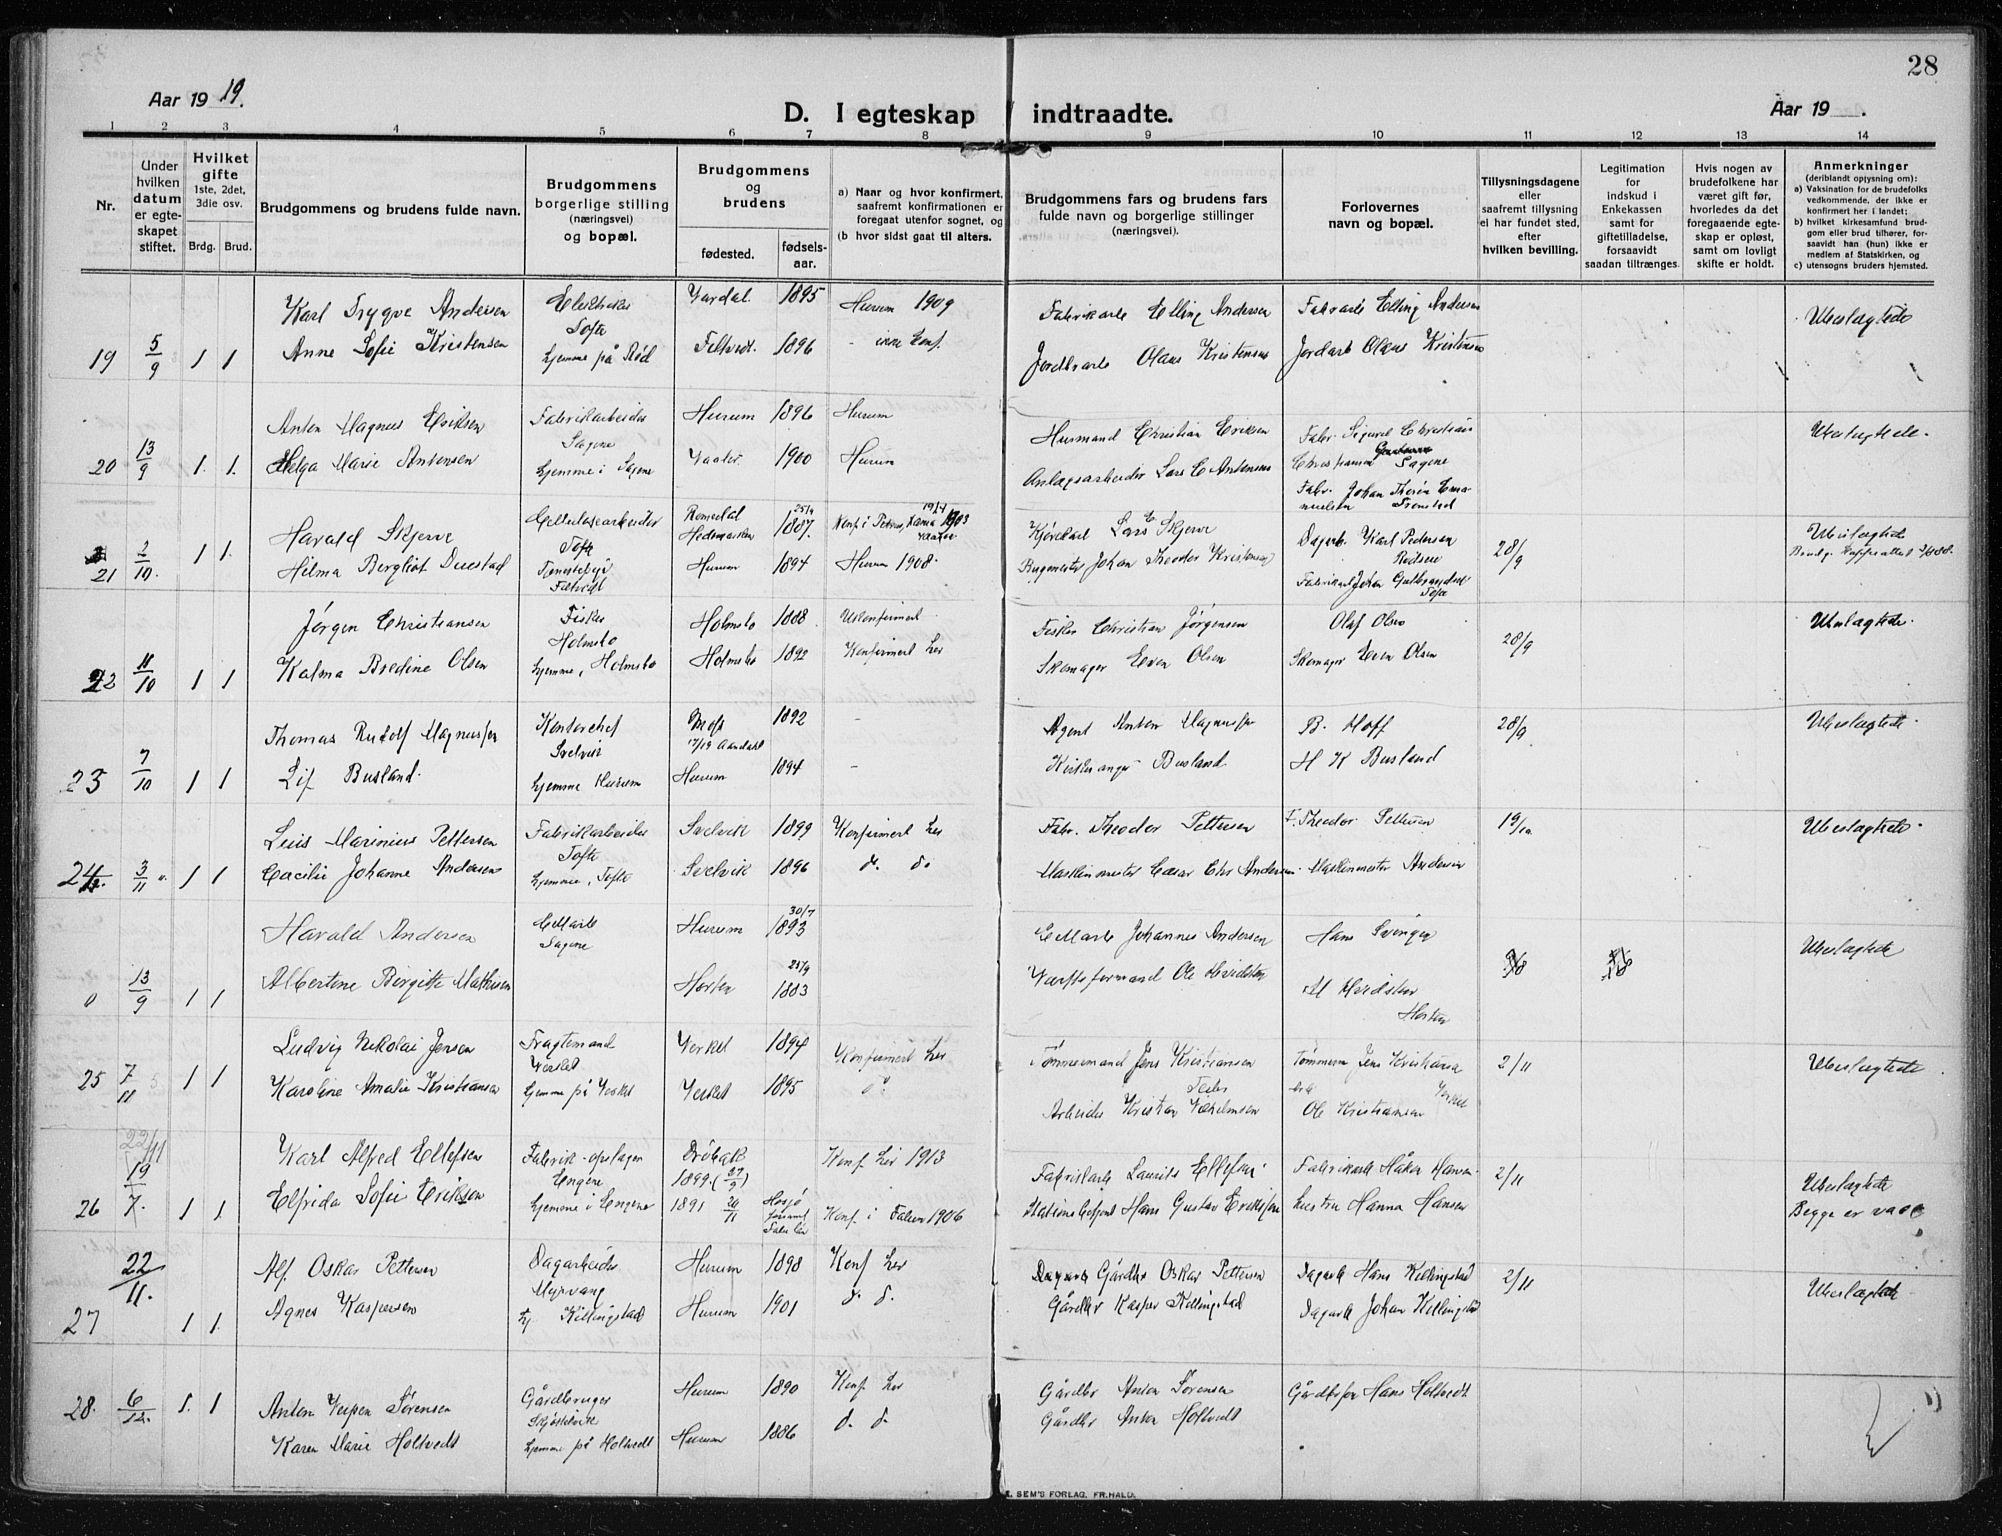 28
Aar 19 19.
D. I egteskap indtraadte.
Aar 19
1 2 3 4 5 6 7 8 9 10 11 12 13 14
Nr.
Under hvilken datum er egte- skapet stiftet.
Hvilket gifte 1ste, 2det, 3die osv.
Brdg. Brud.
Brudgommens og brudens fulde navn.
Brudgommens borgerlige stilling (næringsvei) og bopæl.
Brudgommens og brudens
fødested. fødsels- aar.
a) Naar og hvor konfirmert, saafremt konfirmationen er foregaat utenfor sognet, og
(b hvor sidst gaat til alters.
Brudgommens fars og brudens fars fulde navn og borgerlige stillinger (næringsvei).
Forlovernes navn og bopæl.
Tillysningsdagene eller saafremt tillysning ei har fundet sted, efter hvilken bevilling.
Legitimation for indskud i Enkekassen samt for giftetilladelse, forsaavidt saadan tiltrænges.
Hvis nogen av brudefolkene har været gift før, hvorledes da det foregaaende egte- skap er opløst, samt om lovligt skifte er holdt.
Anmerkninger (deriblandt opjysning om):
a) Vaksination for de brudefolks vedkommende, der ikke er konfirmert her i landet;
b) hvilket kirkesamfund brud- gom eller brud tilhører, for- saavidt han (hun) ikke er medlem af Statskirken, og
c) utensogns bruders hjemsted.
Karl Trygve Andersen Tofte Vardal. 1895 Hurum 1909 Fabrikarb Elling Andersen Fabrarb Elling Andersen Ubeslægtede
19 5/9 1 1 Anne Sofie Kristensen hjemme på Rød 1896 - ikke konf. Jordbrarb Olaus Kristensen Jordarb Olaus Kristensen
Anton Magnus Eriksen Fabrikarbeider Sagene Hurum 1896 Hurum Husmand Christian Eriksen Fabr. Sigurd Christian Christiansen Sagene Ubeslægtede.
20 13/9 1. 1. Helga Marie Antonsen hjemme i Sagene Vaaler 1900 Hurum Anlægsarbeider Lars E Antonsen Fabr. Johan
Harald Skjerve Cellulosearbeider Tofte Romedal Hedemarken 25/4 1887. Konf i 1903 Kjørekarl Lars E Skjerve Dagarb. Karl Pedersen Rødsene 28/9 Ubeslægtede
21 2/10. 1 1. Hilma Bergliot Duestad Hurum 1894 Hurum 1908. Johan Theodor Kristensen Fabrikarb Johan Gulbrandsen Tofte
Jörgen Christiansen Fisker Holmsbo Holmsbo 1888 Ukonfirmert Fisker Christian Jørgensen Olaf Olsen 28/9 Ubeslægtede.
22 11/10 1 1 Kalma Bredine Olsen hjemme, Holmsbo Holmsbo 1892 Konfirmert her Skomager Even Olsen Skomager Even Olsen
Thomas Rudolf Magnussen Kontorchef Svelvik Moss 1892 - Agent Anton Magnussen B. Hoff 28/9 Ubeslægtede.
23 7/10 1 1 Lif Busland. hjemme Hurum Hurum 1894 - Kirkesanger Busland H K Busland
Marinius Pettersen Fabrikarbeider Tofte Svelvik 1899 Konfirmert her Fabr. Theodor Pettersen F. Theodor Pettersen 19/10 Ubeslægtede.
24 3/11 1 1 Cacilie Johanne Andersen hjemme, Tofte Svelvik 1896 d. do Maskinmester Cæsar Chr Andersen. Maskinmester Andersen
Harald Andersen Sagene Hurum 30/7 1893 Johannes Andersen Hans Ubeslægtede
0 13/9 1 1 Albertine Birgitte Mathisen Horten 25/9 1883 Værftsformand Ole Hvidsten M Hvidsten Horten
Ludvig Nikolai Jensen Fragtemand Verket Verket 1894 Konfirmert her Tømmermand Jens Kristiansen Tømmerm Jens Kristiansen Verket 2/11 Ubeslægtede
25 7/11 1 1 Karoline Amalie Kristiansen hjemme på Verket Verket 1895 do Arbeider Kristian Ole Kristiansen
22/11
Karl Alfred Ellefsen Engene Drøbak 1899. (27/9) Konf her 1913 Fabrikarb Laurits Ellefsen. Fabrikarb Håkon Hansen 2/11 Ubeslægtede
26 19/7. 1 1 Elfrida Sofie Eriksen hjemme i Engene 1891 20/11 Konf. i Falun 1906 Hans Gustav Eriksson Hanna Hansen Begge er vacc
22/11. Alf Oskar Pettersen Dagarbeider Myrvang Hurum 1898 Konf her Gårdbr Oskar Pettersen Dagarb Hans Killingstad 2/11 Ubeslægtede
27 1 1. Agnes Kaspersen hj Killingstad Hurum 1901 d. d. Gårdbr Kasper Killingstad Dagarb Johan Killingstad
28. 6/12. 1. 1 Anton Sørensen Gårdbruger Hurum 1890 Konf her Gårdbr Anton Sørensen Gårdbr Hans Holtvedt
Karen Marie Holtvedt hjemme på Holtvedt Hurum 1886 d. d. Gårdbr Anton Holtvedt
E. SEM'S FORLAG, FR.HALD.